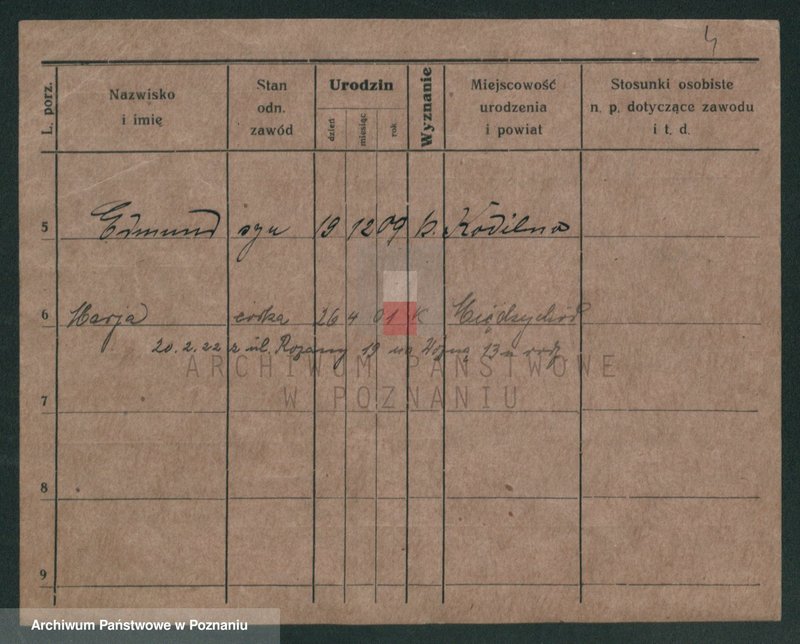 4
L. porz.
Nazwisko
i imię
Stan
odn.
zawód
Urodzin
dzień
miesiąc
rok
Wyznanie
Miejscowość
urodzenia
i powiat
Stosunki osobiste
n. p. dotyczące zawodu
i t. d.
5 Edmund syn 19 12 09 k.
6 Marja córka 26 4 01 K Międzychód
20.2.22 z ul. 19 na 13
ARCHIWUM PAŃSTWOWE
W POZNANIU
7
8
9
Archiwum Państwowe w Poznaniu